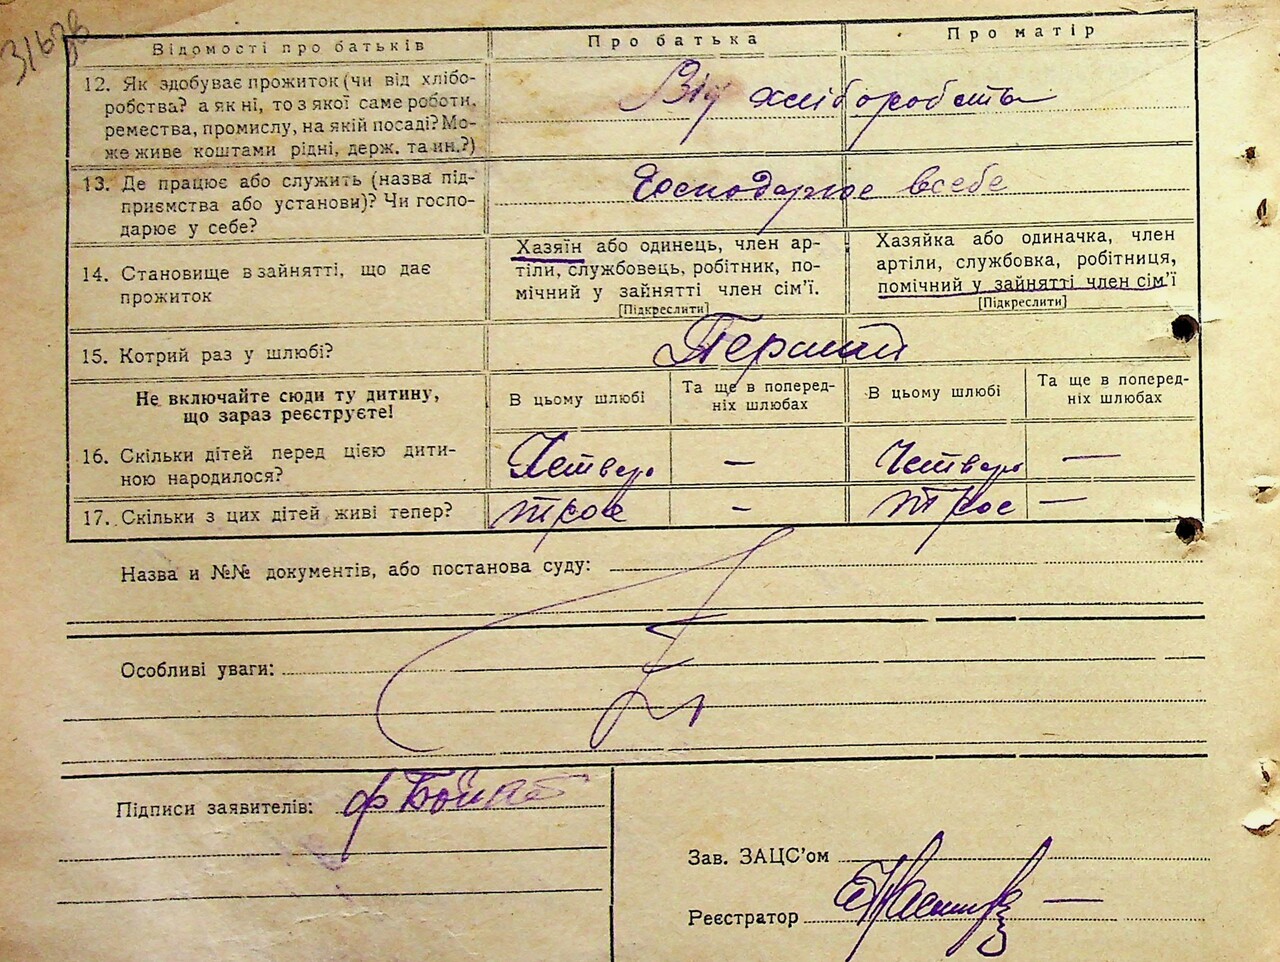 Відомості про батьків
Про батька
Про матір
12. Як здобуває прожиток (чи від хлібо-
робства? а як ні, то з якої саме роботи,
ремества, промислу, на якій посаді? Мо-
же живе коштами рідні, держ. та ин.?)
Від хліборобства
13. Де працює або служить (назва під-
приємства або установи)? Чи госпо-
дарює у себе?
Господарює в себе
14. Становище в зайнятті, що дає
прожиток
Хазяїн або одинець, член ар-
тіли, службовець, робітник, по-
мічний у зайнятті член сім'ї.
[Підкреслити]
Хазяйка або одиначка, член
артіли, службовка, робітниця,
помічний у зайнятті член сім'ї
[Підкреслити]
15. Котрий раз у шлюбі?
Перший
Не включайте сюди ту дитину,
що зараз реєструєте!
В цьому шлюбі
Та ще в поперед-
ніх шлюбах
В цьому шлюбі
Та ще в поперед-
ніх шлюбах
16. Скільки дітей перед цією дити-
ною народилося?
Четверо — Четверо —
17. Скільки з цих дітей живі тепер?
троє — троє —
Назва и №№ документів, або постанова суду:
Особливі уваги:
Підписи заявителів:
Зав. ЗАЦС'ом
Реєстратор